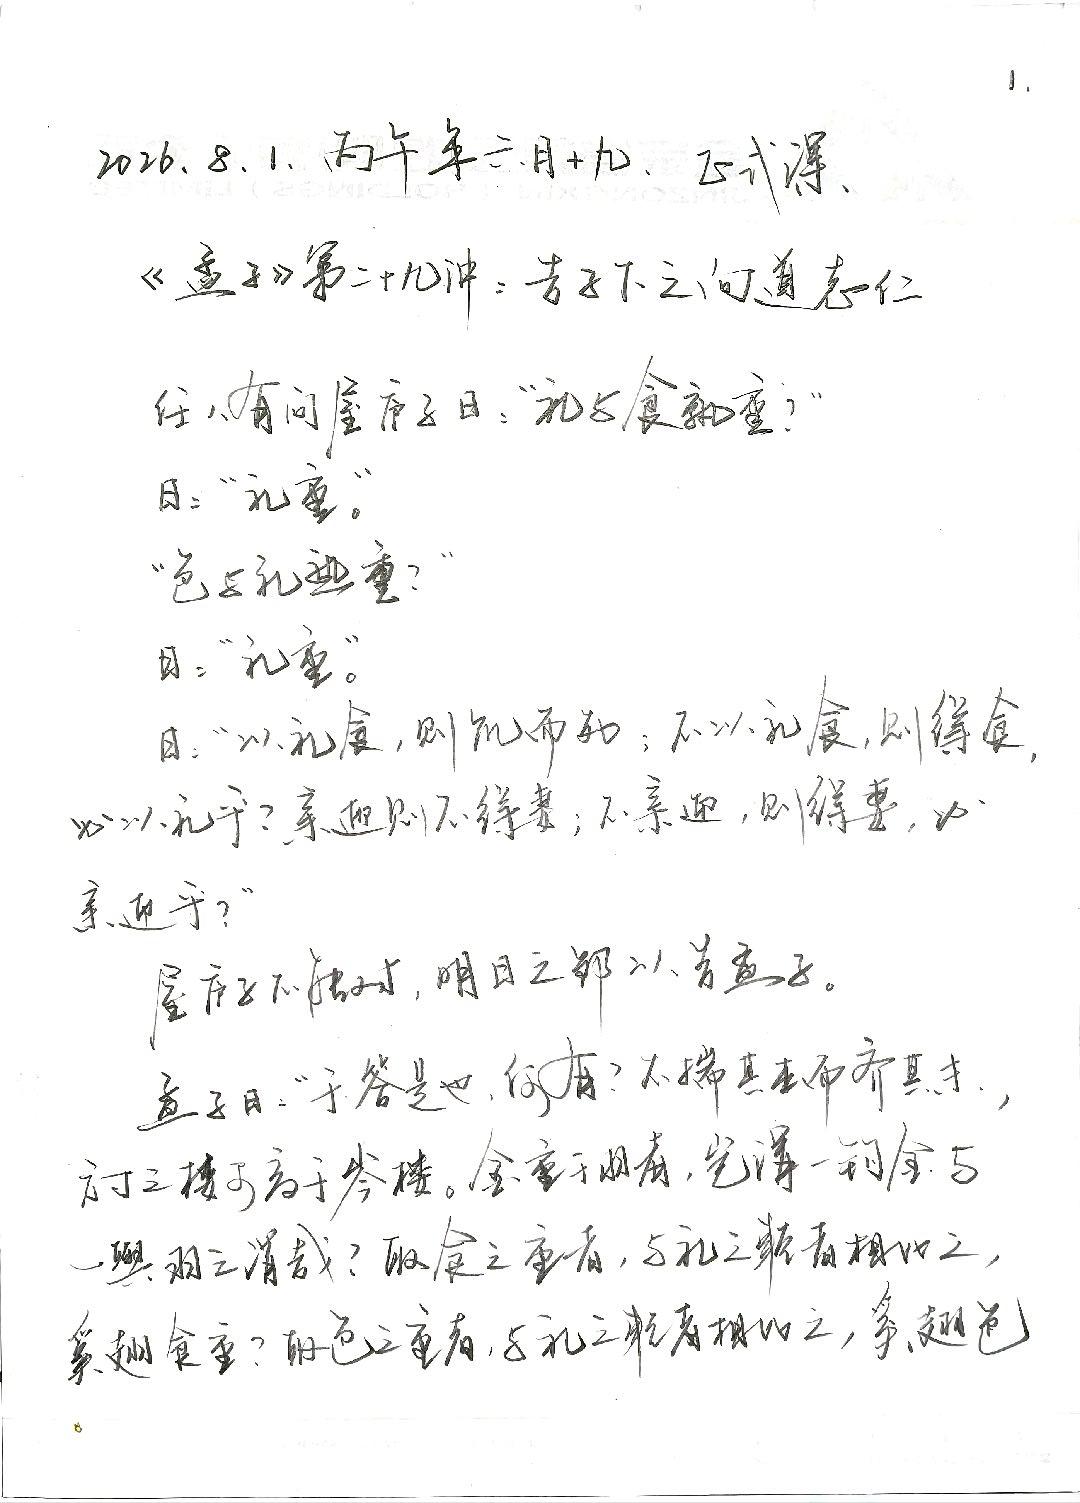 1.
2026.8.1.丙午年六月十九、正式课、
《孟子》第二十九讲:告子下之向道志仁
任人有问屋庐子曰:“礼与食孰重?”
曰:“礼重”。
“色与礼孰重?”
曰:“礼重”。
曰:“以礼食,则饥而死;不以礼食,则得食,
必以礼乎?亲迎则不得妻;不亲迎,则得妻,必
亲迎乎?”
屋庐子不能对,明日之邹以告孟子。
孟子曰:“于答是也,何有?不揣其本而齐其末,
方寸之楼可高于岑楼。金重于羽者,岂谓一钩金与
一舆羽之谓哉?取食之重者,与礼之轻者相比之,
奚翅食重?取色之重者,与礼之轻者相比之,奚翅色